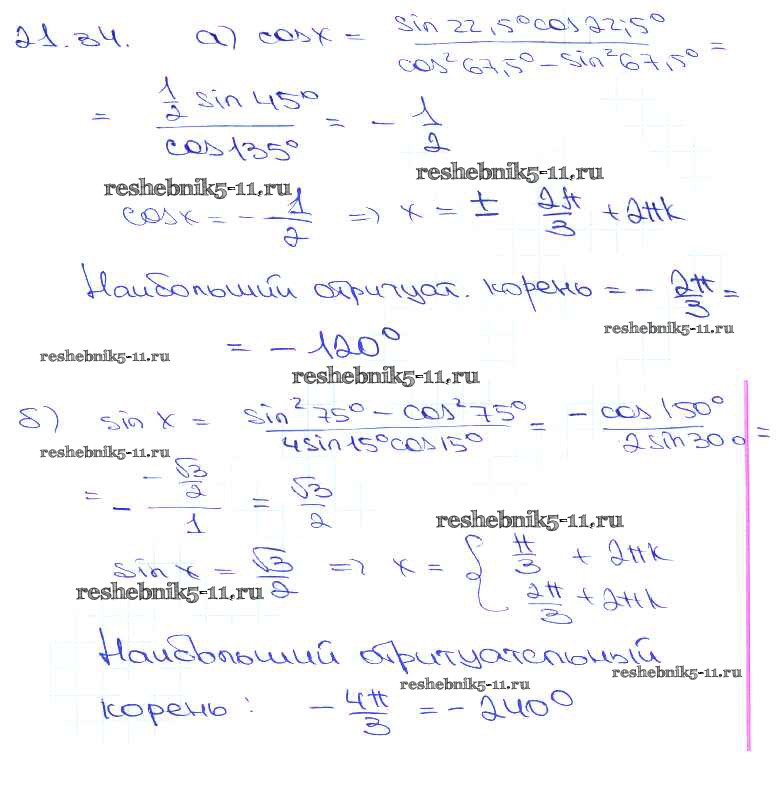 21.34. а) cosx = sin22,5°cos22,5° / cos²67,5° - sin²67,5° =
= 1/2 sin45° / cos135° = - 1/2
reshebnik5-11.ru reshebnik5-11.ru
cosx = - 1/2 => x = ± 2π/3 + 2πk
Наибольший отрицат. корень = - 2π/3 =
reshebnik5-11.ru
= - 120°
reshebnik5-11.ru
reshebnik5-11.ru
б) sin x = sin²75° - cos²75° / 4sin15°cos15° = - cos150° / 2sin30° =
reshebnik5-11.ru
= - -√3/2 / 1 = √3/2
reshebnik5-11.ru
sin x = √3/2 => x = { π/3 + 2πk
2π/3 + 2πk
reshebnik5-11.ru
Наибольший отрицательный
reshebnik5-11.ru
reshebnik5-11.ru
корень: - 4π/3 = - 240°